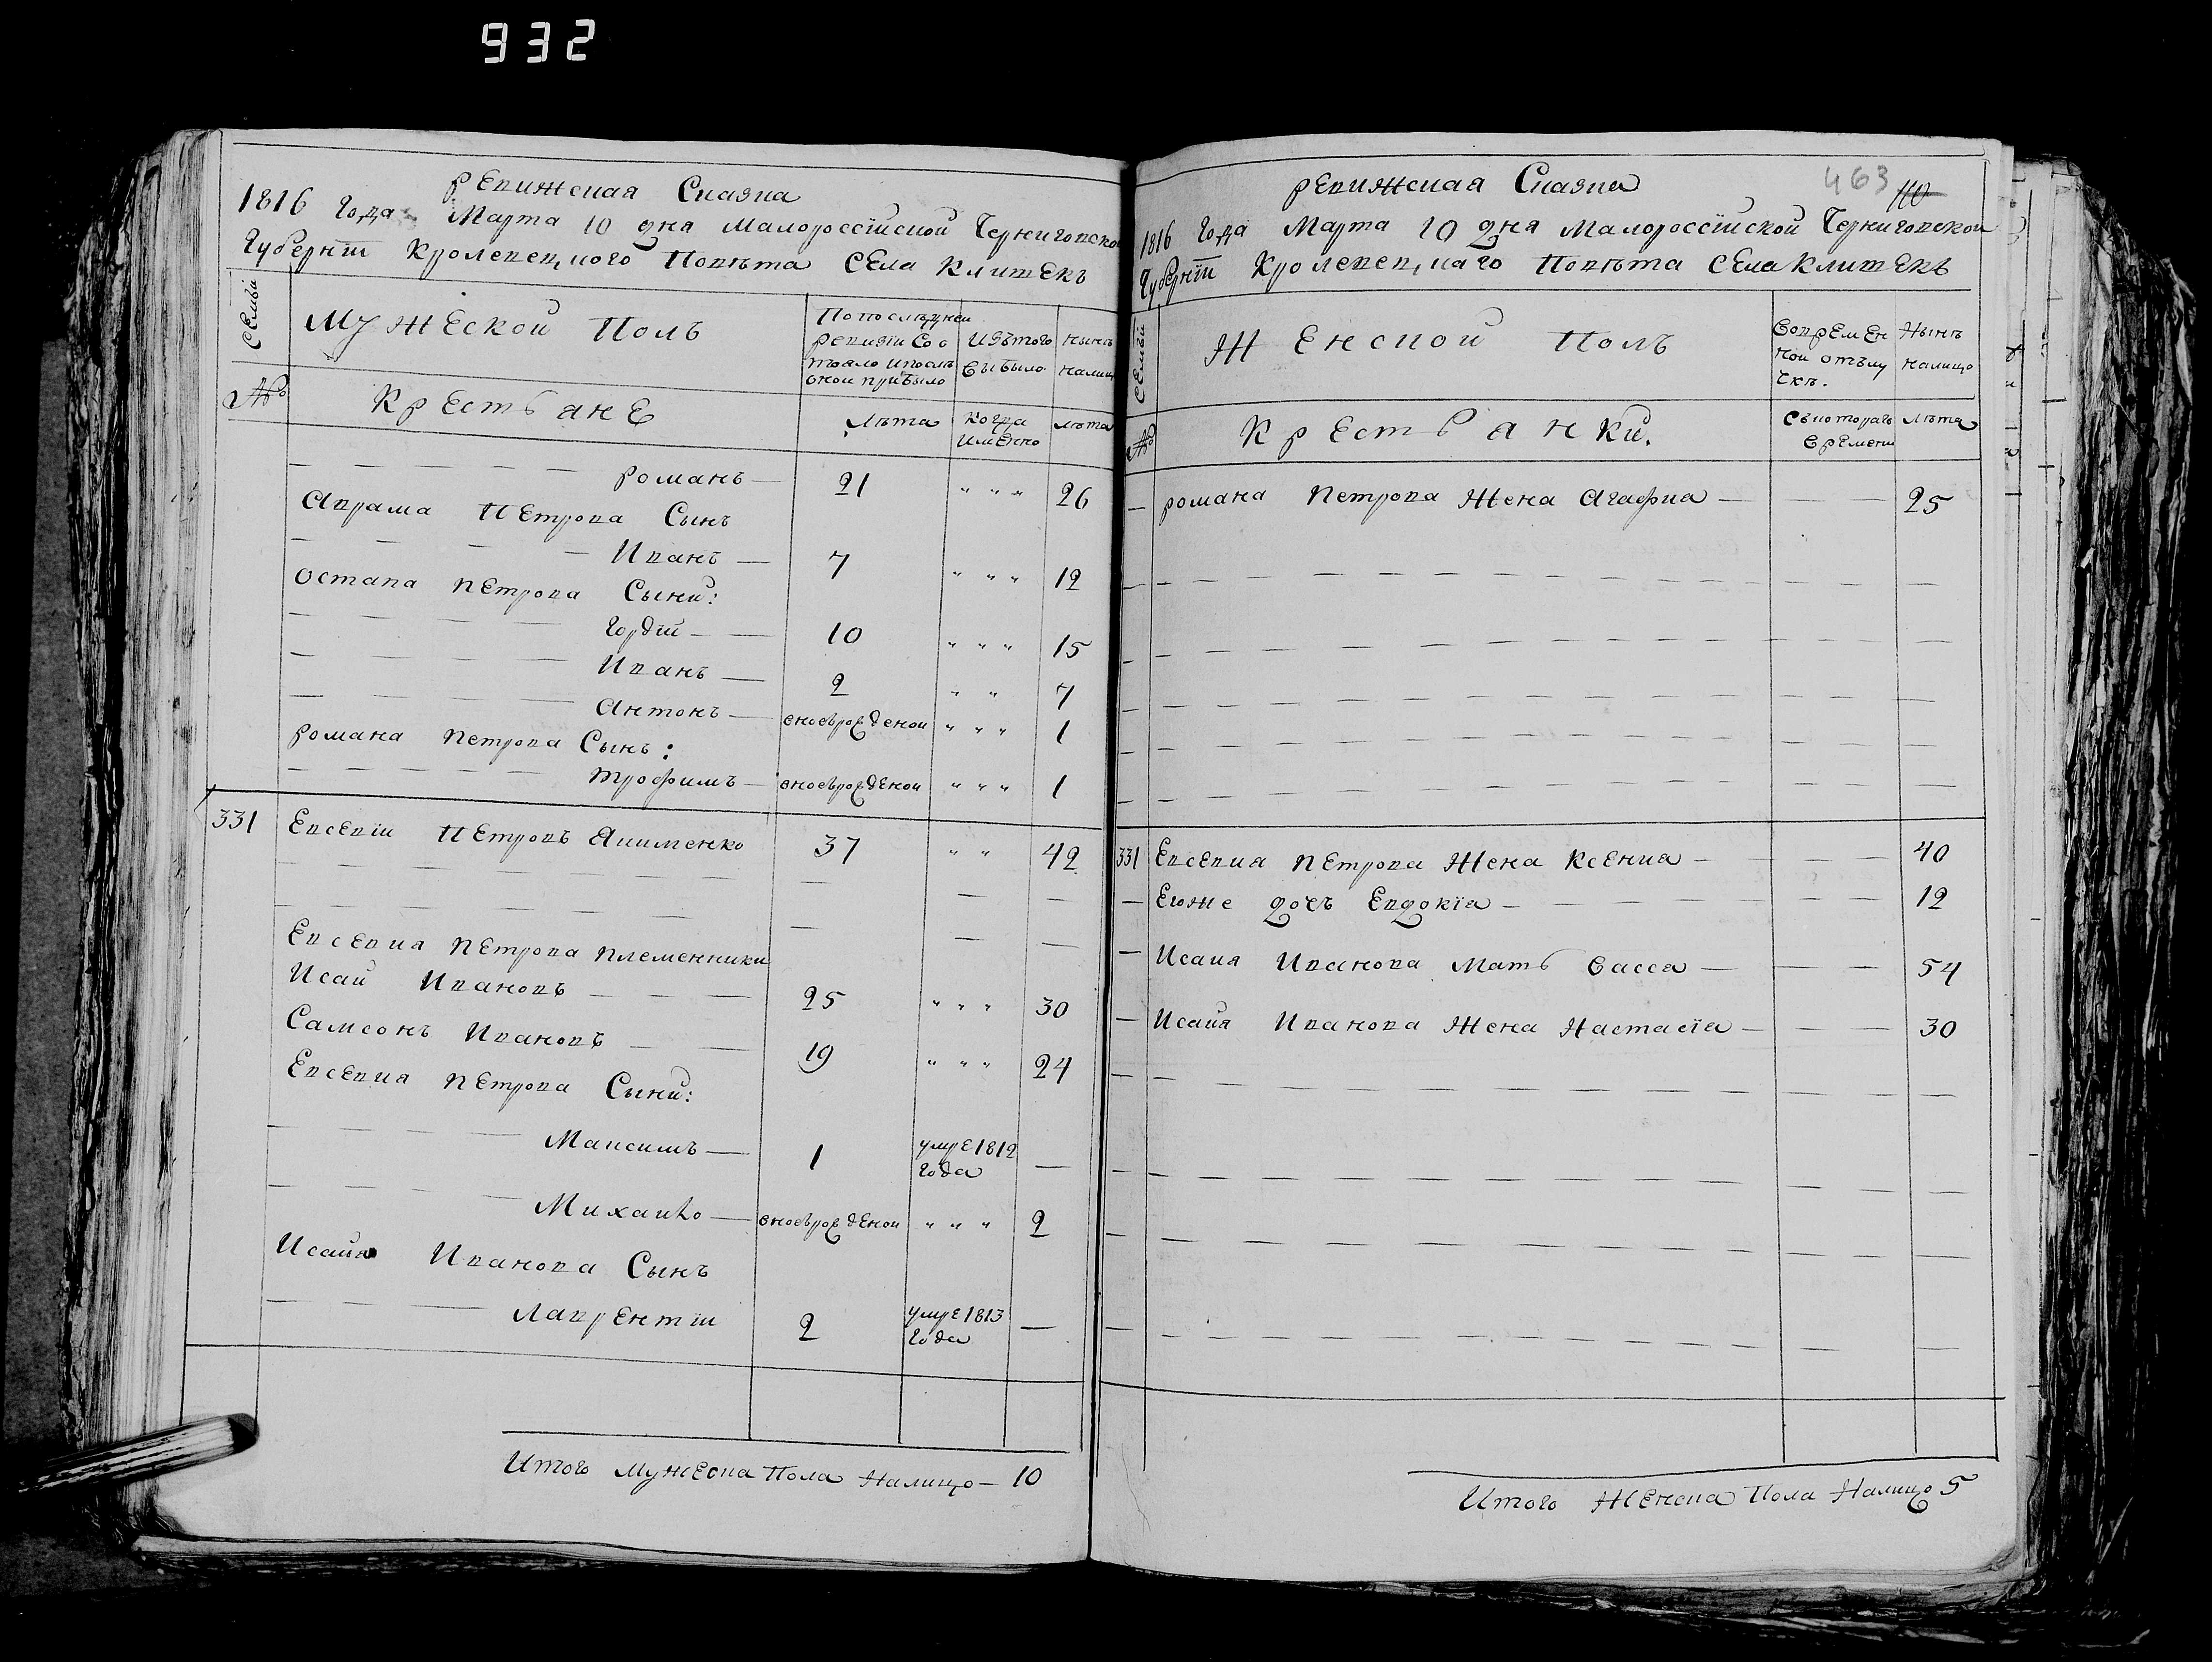 932
Ревижская Сказка
1816 Года Марта 10 дня Малороссїйской Черниговской
Губернїи Кролевецкого Повѣта Села Клишекъ
Семьи
Мужеской Полъ
По послѣдней
ревизїи Сос
тояло и послѣ
оной прибыло
Изътого
выбыло
нынѣ
налицо
№
Крестьяне
Лѣта
Когда
именно
лѣта
— — — — — Романъ — 21 " " " 26
Аврама Петрова Сынъ
— — — — Иванъ — 7 " " " 12
Остапа Петрова Сыни:
— — — — Гордїй — — 10 " " " 15
— — — — Иванъ — 2 " " 7
— — — — Антонъ — вновьрожденой " " " 1
Романа Петрова Сынъ:
— — — — — Трофимъ — вновьрожденой " " " 1
331 Евсевїй Петровъ Якименко 37 " " 42
— — — — — — — — — —
— — — — — — — — —
Евсевия Петрова племенники
Исай Ивановъ — — — 25 " " " 30
Самсонъ Ивановъ — — 19 " " " 24
Евсевия Петрова Сыни:
— — — — Максимъ — 1 умре 1812
года —
— — — — Михайло — вновьрожденой " " " 2
Исайя Иванова Сынъ
— — — Лаврентїй 2 умре 1813
года —
Итого Мужеска Пола Налицо — 10
463 110
Ревижская Сказка
1816 Года Марта 10 дня Малороссїйской Черниговской
Губернїи Кролевецкаго Повѣта Села Клишекъ
Семьи
Женской Полъ
Вовремен
ной отълу
чкѣ.
Нынѣ
налицо
№
Крестьянки.
Съкоторагѣ
времени
Лѣта
— Романа Петрова Жена Агафиа — — — 25
— — — — — — — — — — — — —
— — — — — — — — — — — — —
— — — — — — — — — — — — —
— — — — — — — — — — — — —
— — — — — — — — — — — — —
331 Евсевия Петрова Жена Ксения — — — 40
— Егоже дочъ Евдокїа — — — — — — 12
— Исаия Иванова Мать Васса — — — 54
— Исайя Иванова Жена Настасїа — — — 30
— — — — — — — — — — — — —
— — — — — — — — — — — — —
— — — — — — — — — — — — —
— — — — — — — — — — — — —
Итого Женска Пола Налицо 5